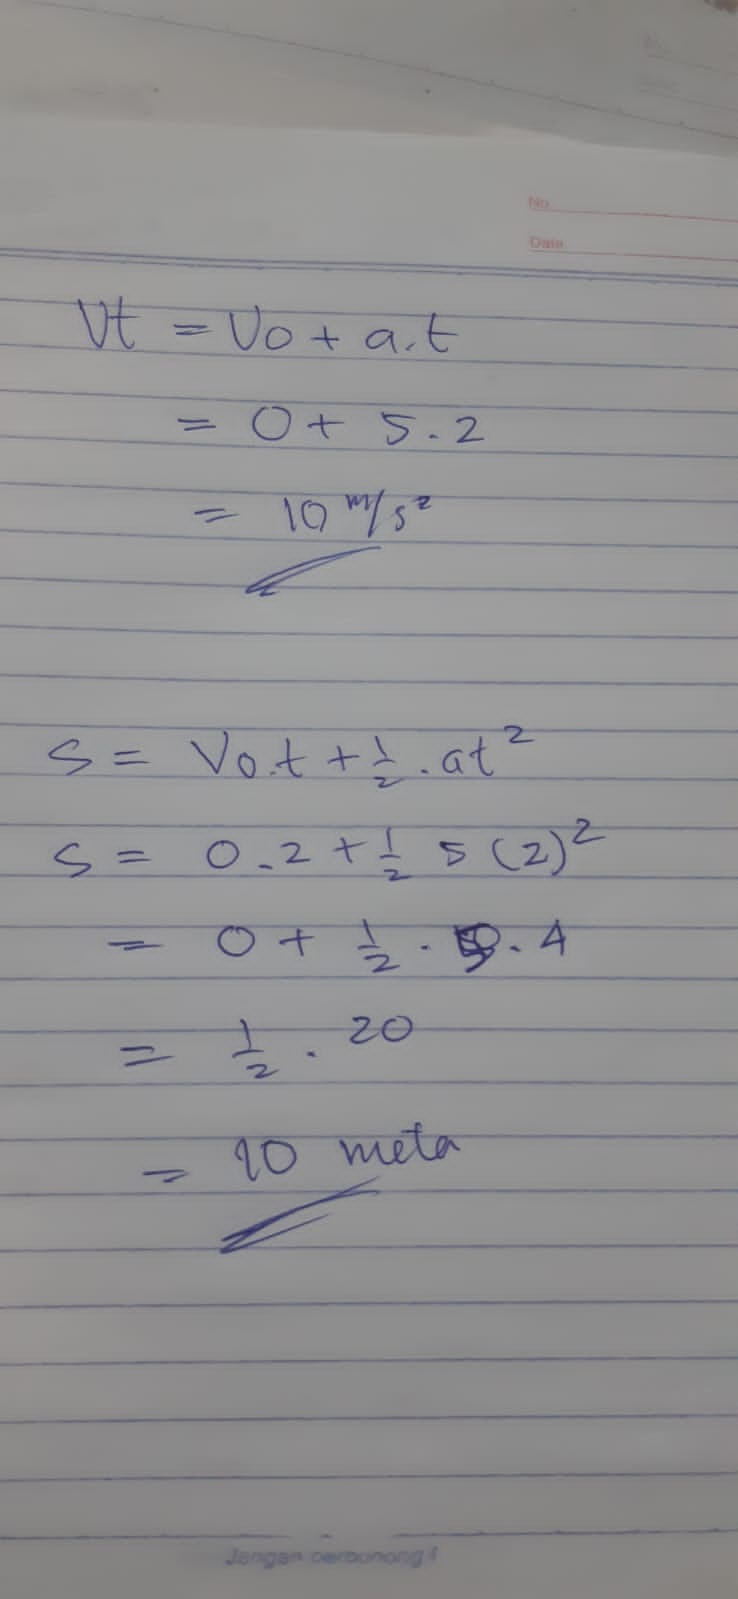 No
Date
Vt = Vo + a.t
= 0 + 5.2
= 10 m/s²
S = Vo.t + 1/2 . at²
S = 0.2 + 1/2 5 (2)²
= 0 + 1/2 . 5 . 4
= 1/2 . 20
= 10 meter
Jangan